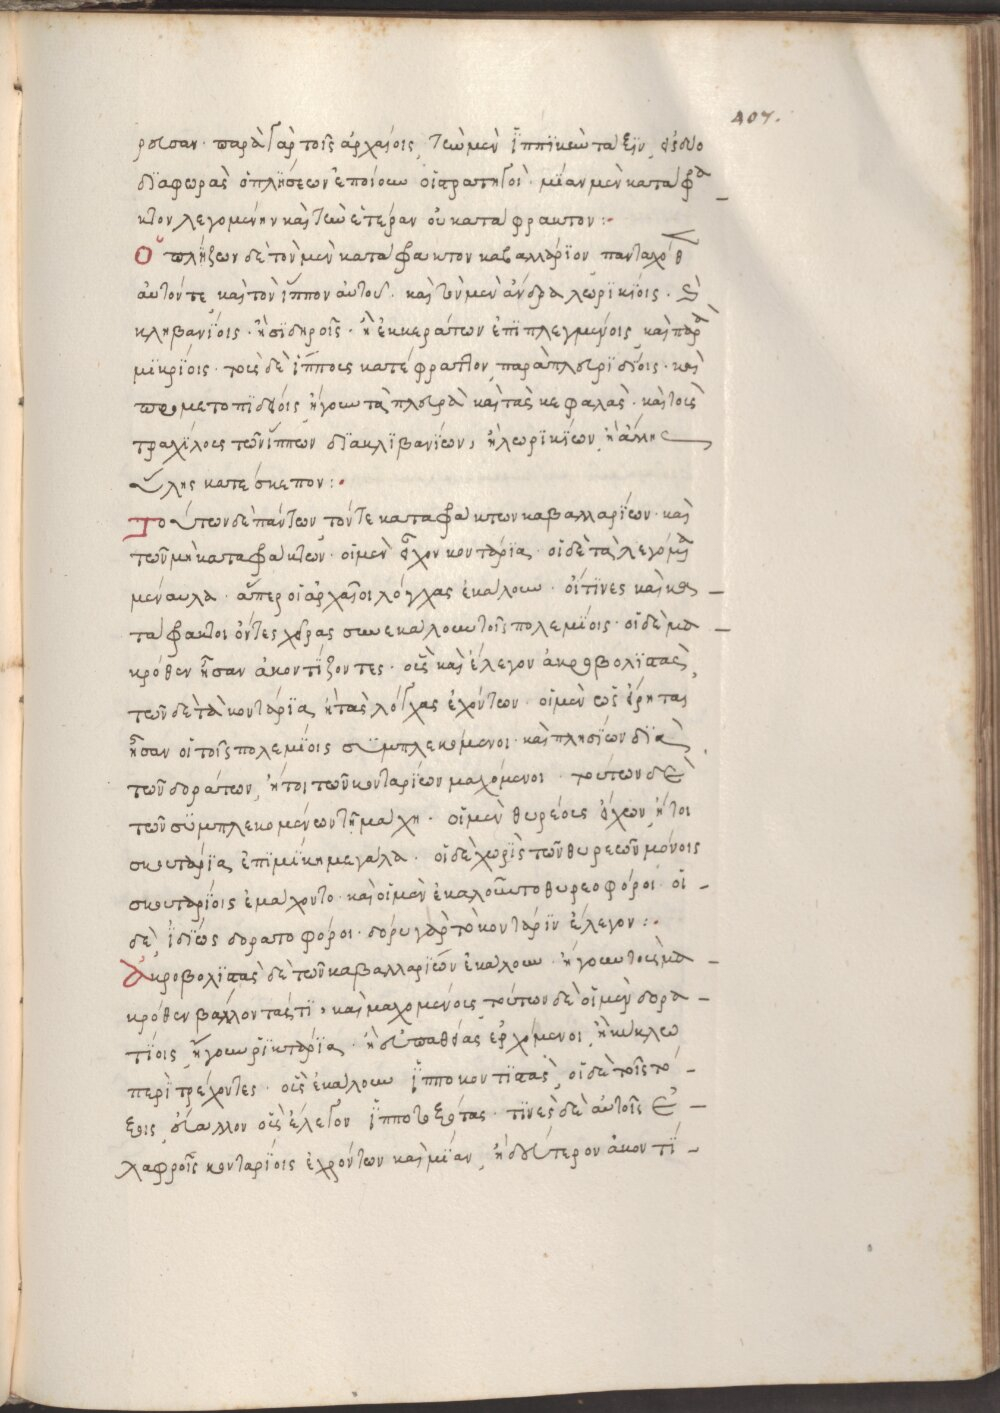 407.
ροισαν· παρὰ γὰρ τοῖς ἀρχαίοις, τὼ μὲν ἱππϊκὼ ταξϊν, εἰς δύο
δϊαφωρὰς ὁπλήσεων ἐποίουν οἱ στρατηγοὶ· μίαν μὲν καταφρα
κτον λεγομένην καὶ τὼ ἑτέραν οὐ καταφρακτον:·
Ὁπλήζων δὲ τὸν μὲν καταφρακτον καβαλλάρϊον πανταχόθ
αὐτόν τε καὶ τὸν ἵππον αὐτοῦ. καὶ τὸν μὲν ἄνδρα λωρικίοις· καὶ
κληβανίοις· ἢ σϊδηροῖς· ἢ ἐκ κεράτων ἐπϊπλεγμένοις, καὶ παρα
μϊκρίοις· τοὺς δὲ ἵππους κατέφραττον, παραπλευρϊδίοις· καὶ
προμετοπϊδίοις, ἤγουν τὰ πλευρὰ καὶ τὰς κεφαλὰς· καὶ τοὺς
τραχίλους τῶν ἵππων δϊακλϊβανίων, ἢ λωρικίων, ἢ ἄλλης
ὕλης κατέσκεπον:·
Τούτων δὲ πάντων τόν τε καταφράκτων καβαλλαρίων· καὶ
τῶν μὴ καταφράκτων· οἱ μὲν εἶχον κοντάρϊα· οἱ δὲ τὰ λεγόμενα
μέναυλα· ἅπερ οἱ ἀρχαῖοι λόγχας ἐκάλουν· οἵτϊνες καὶ κα-
ταφρακτοι ὄντες χεῖρας συνεκάλουν τοῖς πολεμίοις· οἱ δὲ μα-
κρόθεν ἦσαν ἀκοντϊζοντες· οὓς καὶ ἔλεγον ἀκροβολϊστὰς,
τῶν δὲ τὰ κοντάρϊα, ἢ τὰς λόγχας ἐχόντων· οἱ μὲν ὡς εἴρηται
ἦσαν οἱ τοῖς πολεμίοις συμπλεκόμενοι· καὶ πλησίων δϊὰ
τῶν δοράτων, ἤτοι τῶν κονταρίων μαχόμενοι· τούτων δὲ
τῶν συμπλεκομένων τῆ μάχη· οἱ μὲν θυρέους εἶχων, ἤτοι
σκουτάρϊα, ἐπϊμϊκη μεγάλα· οἱ δὲ χωρὶς τῶν θυρεῶν μόνοις
σκουταρίοις ἐμάχοντο· καὶ οἱ μὲν ἐκαλοῦντο θυρεοφόροι· οἱ-
δὲ, ἰδίως δορατοφόροι· δόρυ γὰρ τὸ κοντάριν ἔλεγον:·
Ἀκροβολϊστὰς δὲ τῶν καβαλλαρίων ἐκάλουν· ἤγουν τοὺς μα-
κρόθεν βάλλοντας ἔτϊ, καὶ μαχομένοις τούτων δὲ οἱ μὲν δορα-
τίοις, ἤγουν ῥϊκτάρϊα· ἢ σϊπαθέας ἐρχόμενοι, ἢ κύκλω
περὶτρέχοντες· οὓς ἐκάλουν ἱπποκοντϊστὰς, οἱ δὲ τοῖς τό-
ξοις, ἔβαλλον οὓς ἔλεγον ἱπποτοξότας· τϊνὲς δὲ αὐτοῖς ἐ-
λαφροῖς κονταρίοις ἐχρόντων καὶ μίαν, ἢ δεύτερον ἀκοντί-